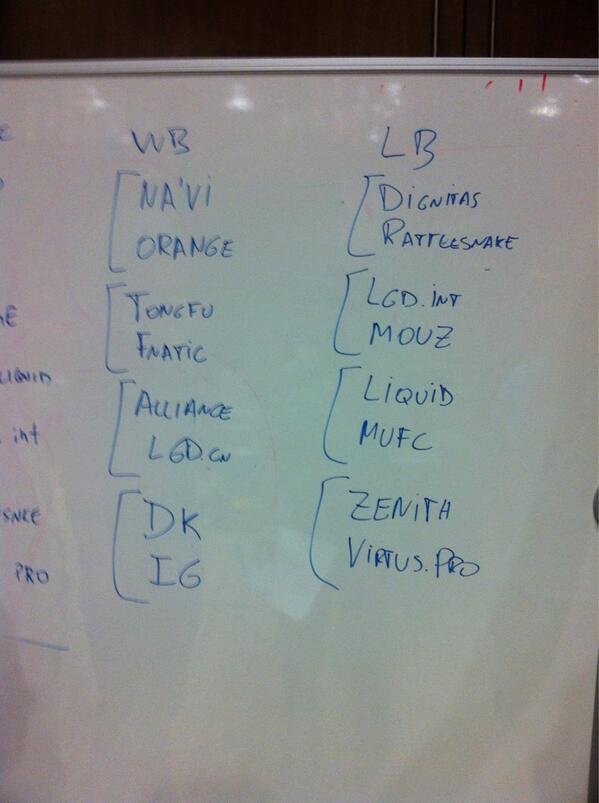 WB
NA'VI
ORANGE
TONGFU
FNATIC
ALLIANCE
LGD.cn
DK
IG
LB
DIGNITAS
RATTLESNAKE
LGD.iNT
MOUZ
LIQUID
MUFC
ZENITH
VIRTUS.PRO
int
PRO